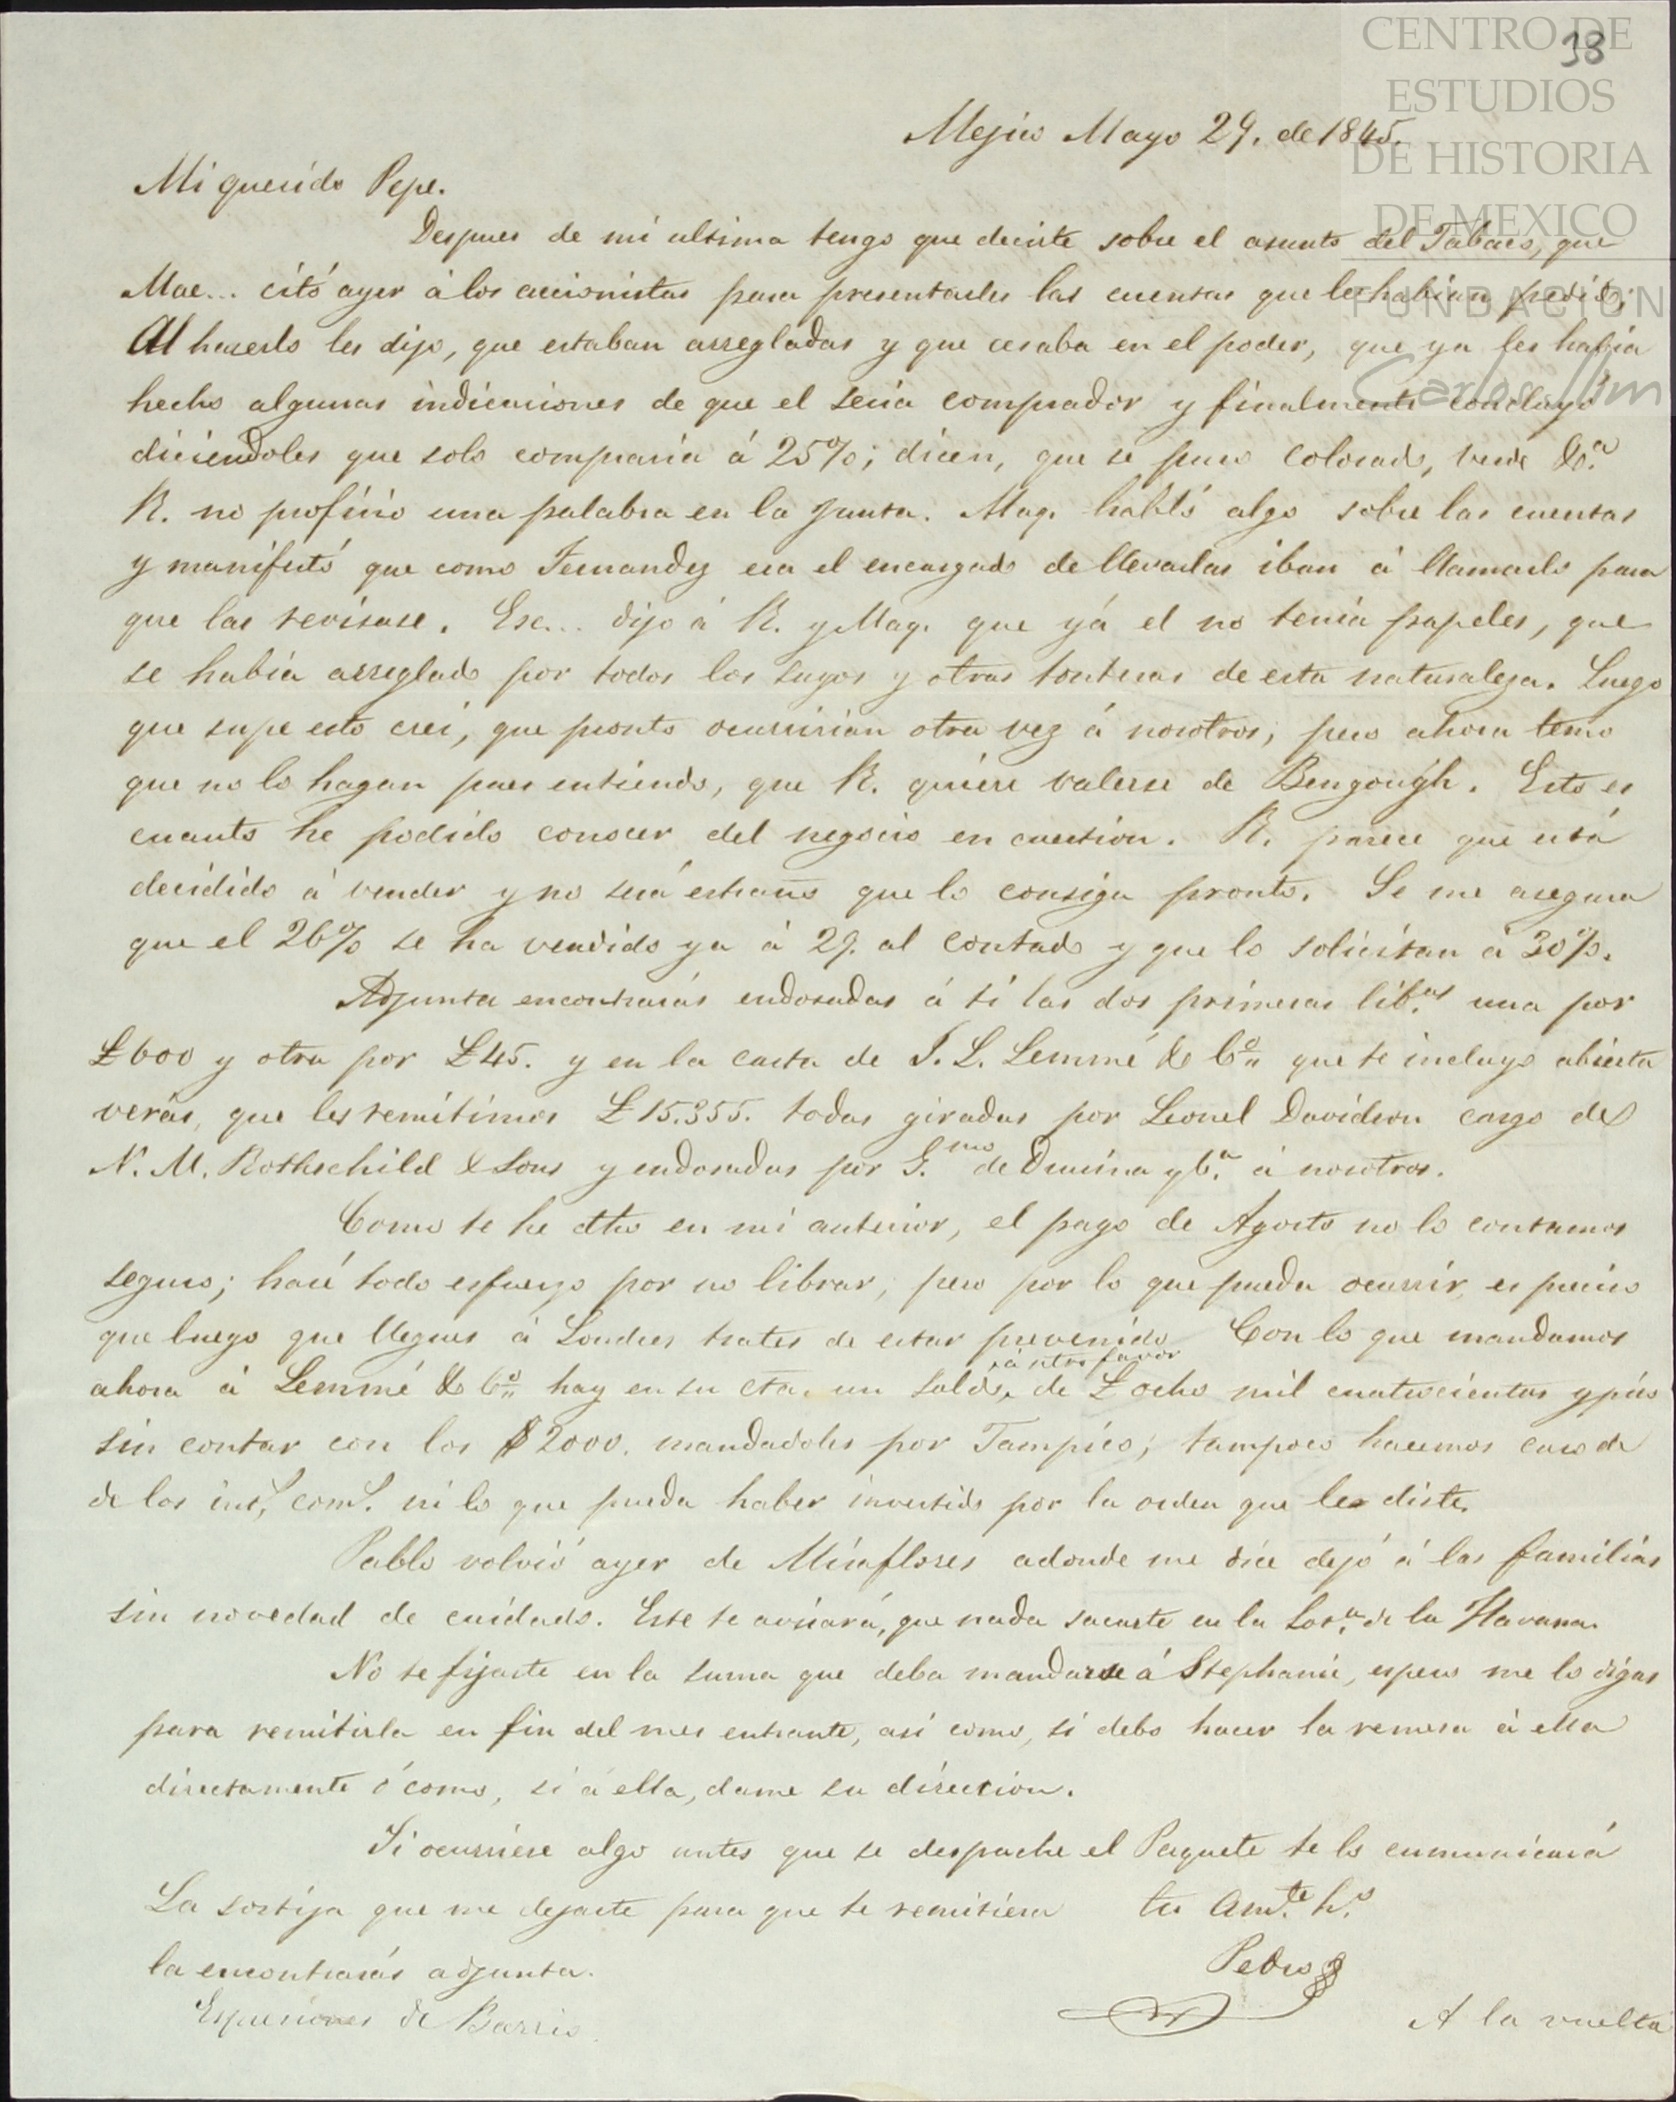 CENTRO DE
ESTUDIOS
DE HISTORIA
DE MEXICO
FUNDACIÓN
Carlos Slim
38
Mejico Mayo 29. de 1845.
Mi querido Pepe.
Despues de mi ultima tengo que decirte sobre el asunto del Tabaco, que
Mac... citó ayer á los accionistas para presentarles las cuentas que les habian pedido;
Al hacerlo les dijo, que estaban arregladas y que cesaba en el poder, que ya les habia
hecho algunas indicaciones de que el seria comprador y finalmente concluyó
diciendoles que solo compraria á 25%; dicen, que se puso colorado, verde &c.ª
R. no profirio una palabra en la Junta. Mag. habló algo sobre las cuentas
y manifestó que como Fernandez era el encargado de llevarlas iban á llamarlo para
que las revisase. Esc... dijo á R. y Mag. que yá el no tenia papeles, que
se habia arreglado por todos los suyos y otras tonteras de esta naturaleza. Luego
que supe esto crei, que pronto ocurririan otra vez á nosotros; pero ahora temo
que no lo hagan pues entiendo, que R. quiere valerse de Bengough. Esto es
cuanto he podido conocer del negocio en cuestion. R. parece que está
decidido á vender y no será estraño que lo consiga pronto. Se me asegura
que el 26% se ha vendido ya á 29. al contado y que lo solicitan á 30%.
Adjunta encontrarás endosadas á ti las dos primeras lib.as una por
£600 y otra por £45. y en la carta de J. L. Lemmé & Co. que te incluyo abierta
verás, que les remitimos £15.355. todas giradas por Leonel Davidson cargo de
N. M. Rothschild & Sons y endosadas por G.mo de Drusina y C.ª á nosotros.
Como te he dho en mi anterior, el pago de Agosto no lo contamos
seguro; haré todo esfuerzo por no librar, pero por lo que pueda ocurrir, es preciso
que luego que llegues á Londres trates de estar prevenido Con lo que mandamos
ahora á Lemmé & Co. hay en su cta. un saldo, á ntro favor de £ ocho mil cuatrocientas y pico
sin contar con los $2000. mandadoles por Tampico; tampoco hacemos caso de
de los int.s com.s ni lo que pueda haber invertido por la orden que les diste.
Pablo volvió ayer de Miraflores adonde me dice dejó á las familias
sin novedad de cuidado. Este te avisará, que nada sacaste en la Lot.a de la Havana.
No te fijaste en la suma que deba mandarse á Stephanie, espero me lo digas
para remitirla en fin del mes entrante, asi como, si debo hacer la remesa á ella
directamente ó como, si á ella, dame su direccion.
Si ocurriese algo antes que se despache el Paquete te lo comunicará
La sortija que me dejaste para que te remitiera tu am.te h.o
la encontrarás adjunta. Pedro
Espresiones de Barrio.
A la vuelta